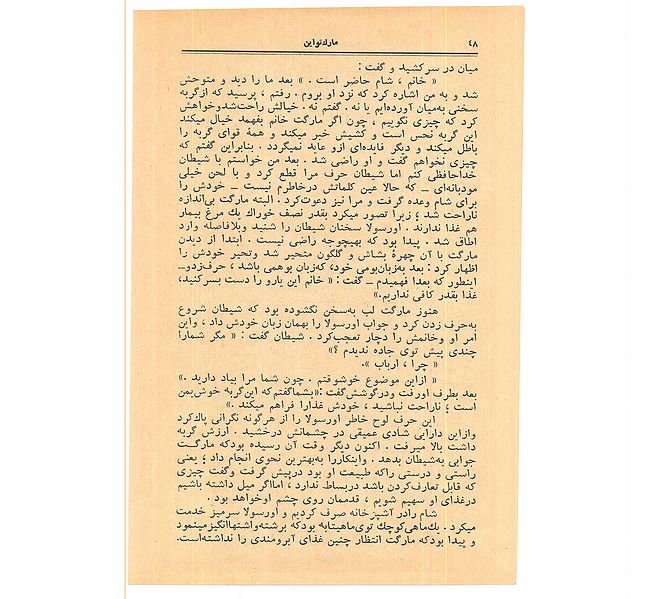 ۴۸
مارك‌تواین
میان در سر کشید و گفت :
« خانم ، شام حاضر است . » بعد ما را دید و متوحش
شد و به من اشاره کرد که نزد او بروم . رفتم ، پرسید که از گربه
سخنی به‌میان آورده‌ایم یا نه . گفتم نه . خیالش راحت شد و خواهش
کرد که چیزی نگوییم ، چون اگر مارگت خانم بفهمد خیال میکند
این گربه نحس است و کشیش خبر میکند و همهٔ قوای گربه را
باطل میکند و دیگر فایده‌ای ازو عاید نمیگردد . بنابراین گفتم که
چیزی نخواهم گفت و او راضی شد . بعد من خواستم با شیطان
خداحافظی کنم اما شیطان حرف مرا قطع کرد و با لحن خیلی
مودبانه‌ای ـ که حالا عین کلماتش در خاطرم نیست ـ خودش را
برای شام وعده گرفت و مرا نیز دعوت کرد . البته مارگت بی‌اندازه
ناراحت شد ؛ زیرا تصور میکرد بقدر نصف خوراك یك مرغ بیمار
هم غذا ندارند . اورسولا سخنان شیطان را شنید و بلافاصله وارد
اطاق شد . پیدا بود که بهیچوجه راضی نیست . ابتدا از دیدن
مارگت با آن چهرهٔ بشاش و گلگون متحیر شد و تحیر خودش را
اظهار کرد : بعد به‌زبان‌بومی خود، که‌زبان بوهمی باشد ، حرف‌زد و ـ
اینطور که بعدا فهمیدم ـ گفت : « خانم این یارو را دست بسر کنید،
غذا بقدر کافی نداریم.»
هنوز مارگت لب به‌سخن نگشوده بود که شیطان شروع
به‌حرف زدن کرد و جواب اورسولا را بهمان زبان خودش داد ، و این
امر او و خانمش را دچار تعجب کرد . شیطان گفت : « مگر شما را
چندی پیش توی جاده ندیدم ؟»
« چرا ، ارباب ».
« از این موضوع خوشوقتم . چون شما مرا بیاد دارید .»
بعد بطرف او رفت و در گوشش گفت :«بشما گفتم که این گربه خوش‌یمن
است ؛ ناراحت نباشید ، خودش غذا را فراهم میکند .»
این حرف لوح خاطر اورسولا را از هرگونه نگرانی پاك کرد
و از این دارایی شادی عمیقی در چشمانش درخشید . ارزش گربه
داشت بالا میرفت . اکنون دیگر وقت آن رسیده بود که مارگت
جوابی به‌شیطان بدهد . و اینکار را به‌بهترین نحوی انجام داد ؛ یعنی
راستی و درستی را که طبیعت او بود در پیش گرفت و گفت چیزی
که قابل تعارف کردن باشد در بساط ندارد ، اما اگر میل داشته باشیم
در غذای او سهیم شویم ، قدممان روی چشم او خواهد بود .
شام را در آشپزخانه صرف کردیم و اورسولا سر میز خدمت
میکرد . یك ماهی کوچك توی ماهیتابه بود که برشته و اشتها انگیز مینمود
و پیدا بود که مارگت انتظار چنین غذای آبرومندی را نداشته است.